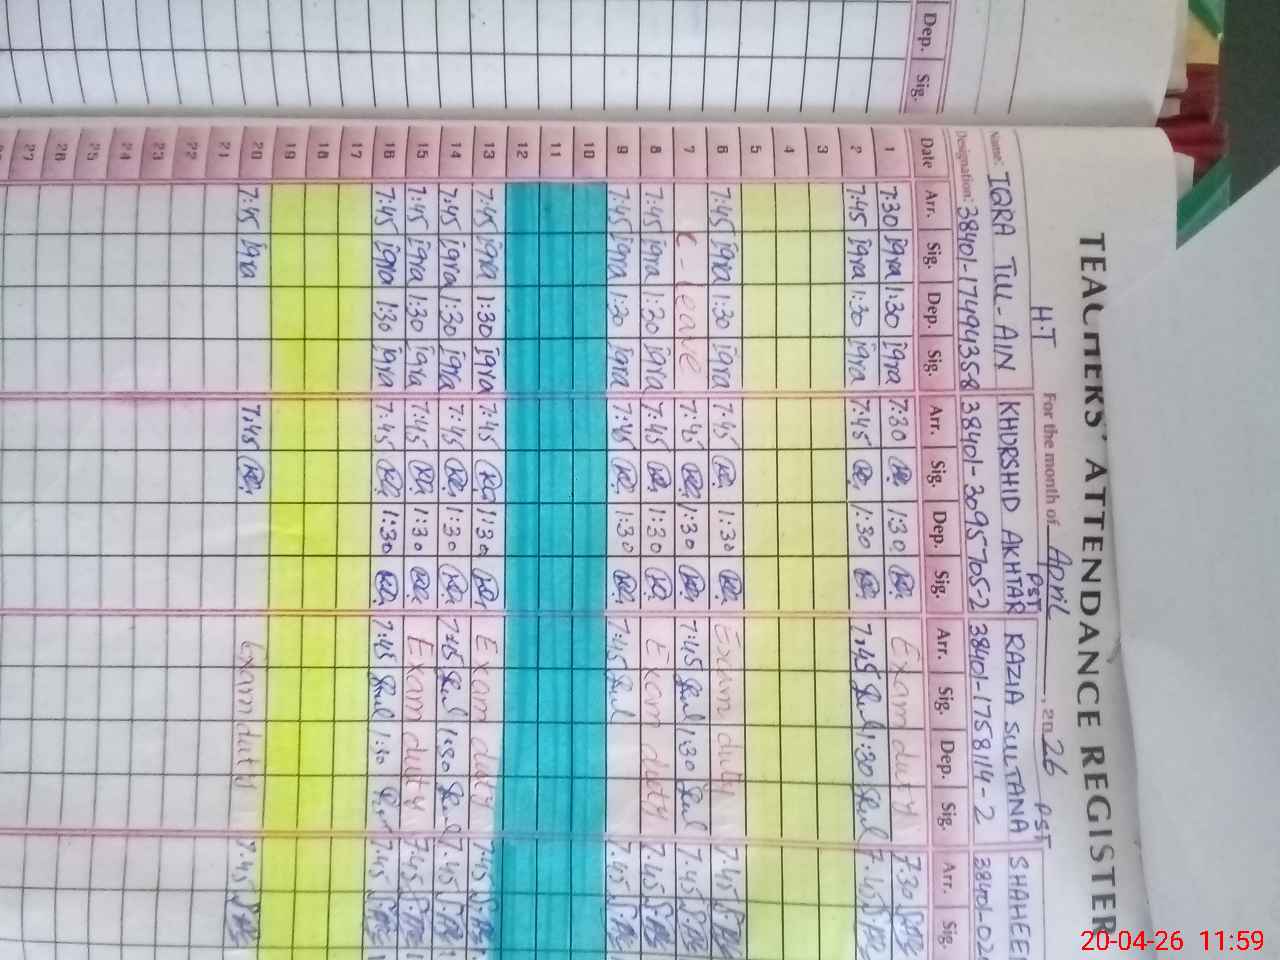 TEACHERS' ATTENDANCE REGISTER
H.T For the month of April, 2026
PST PST
Name: IQRA TUL-AIN KHURSHID AKHTAR RAZIA SULTANA SHAHEE
Designation: 38401-1749435-8 38401-3095705-2 38401-1758114-2 38401-02
Date Arr. Sig. Dep. Sig. Arr. Sig. Dep. Sig. Arr. Sig. Dep. Sig. Arr. Sig.
1 7:30 iqra 1:30 iqra 7:30 1:30 Exam duty 7.30
2 7:45 iqra 1:30 iqra 7:45 1:30 7:45 1:30 7.45
3
4
5
6 7:45 iqra 1:30 iqra 7:45 1:30 Exam duty 7.45
7 c-leave 7:45 1:30 7:45 1:30 7.45
8 7:45 iqra 1:30 iqra 7:45 1:30 Exam duty 7.45
9 7:45 iqra 1:30 iqra 7:45 1:30 7:45 7.45
10
11
12
13 7:45 iqra 1:30 iqra 7:45 1:30 Exam duty 7:45
14 7:45 iqra 1:30 iqra 7:45 1:30 7:45 1:30 7.45
15 7:45 iqra 1:30 iqra 7:45 1:30 Exam duty 7.45
16 7:45 iqra 1:30 iqra 7:45 1:30 7:45 1:30 7.45
17
18
19
20 7:45 iqra 7:45 Exam duty 7.45
21
22
23
24
25
26
27
Dep. Sig.
20-04-26 11:59